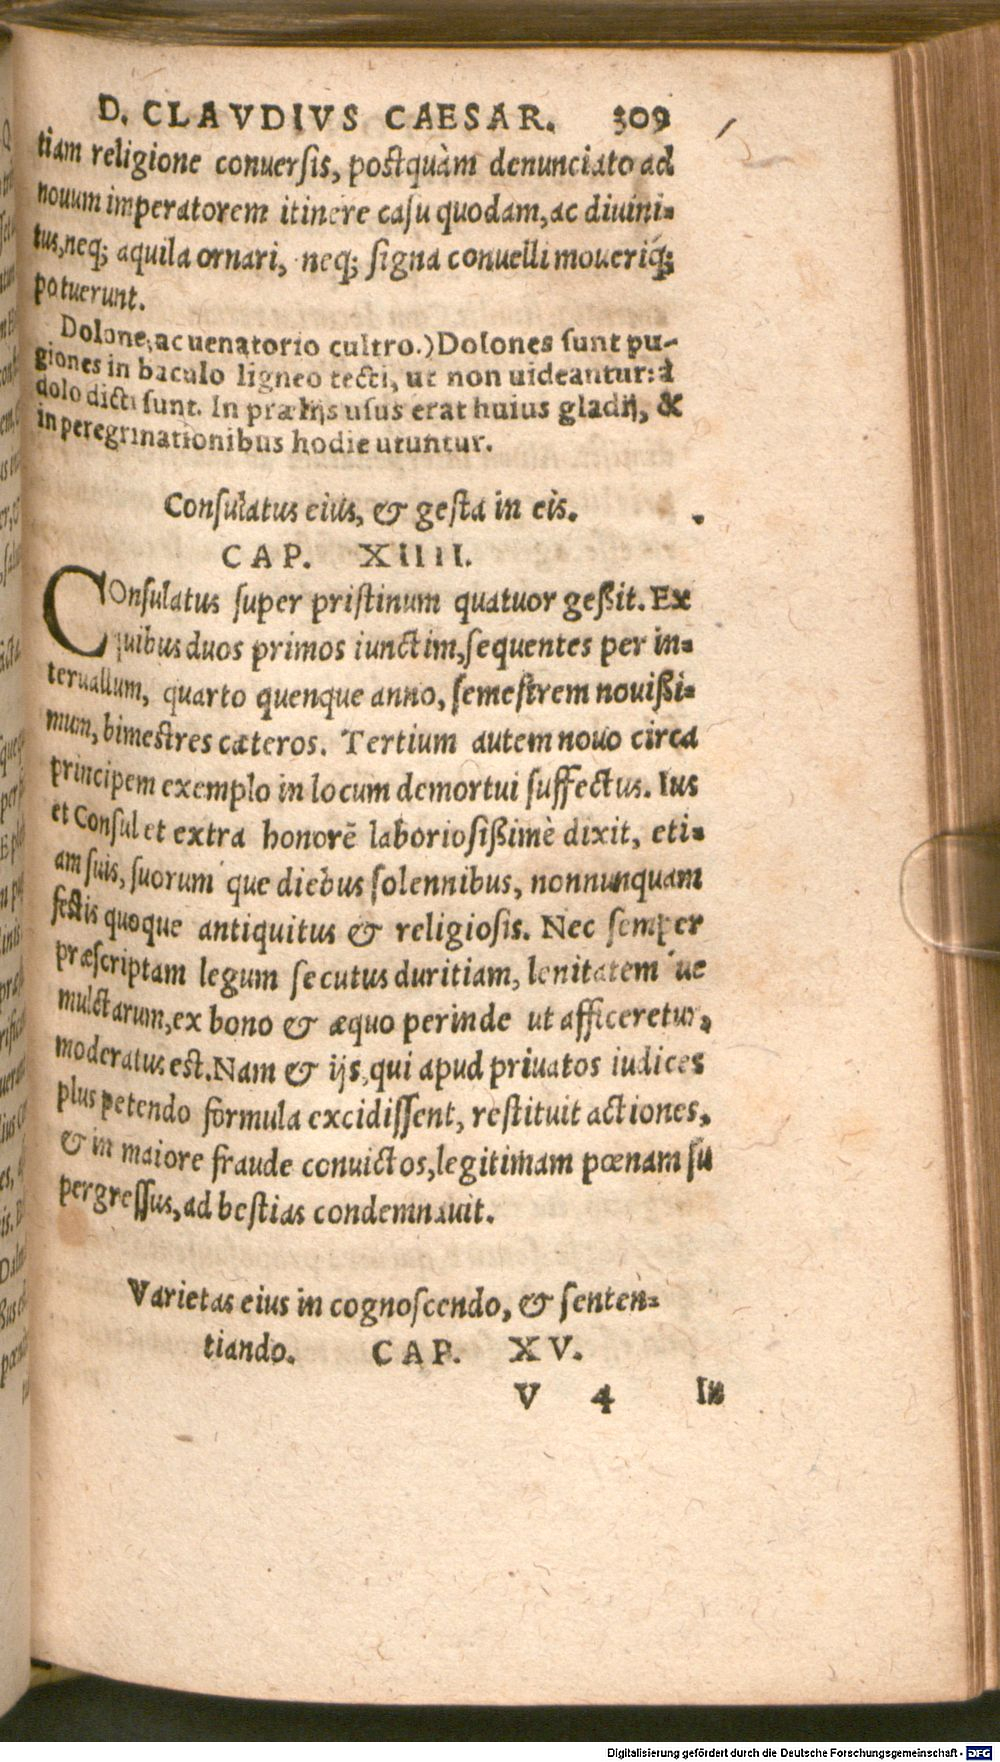 D. CLAVDIVS CAESAR. 309
tiam religione conuersis, postquàm denunciato ad
nouum imperatorem itinere casu quodam, ac diuini-
tus, neq; aquila ornari, neq; signa conuelli moueriq́;
potuerunt.
Dolone, ac uenatorio cultro.) Dolones sunt pu-
giones in baculo ligneo tecti, ut non uideantur: à
dolo dicti sunt. In prælijs usus erat huius gladij, &
in peregrinationibus hodie utuntur.
Consulatus eius, & gesta in eis.
CAP. XIIII.
COnsulatus super pristinum quatuor geßit. Ex
quibus duos primos iunctim, sequentes per in-
teruallum, quarto quenque anno, semestrem nouißi-
mum, bimestres cæteros. Tertium autem nouo circa
principem exemplo in locum demortui suffectus. Ius
et Consul et extra honorē laboriosißimè dixit, eti-
am suis, suorum´que diebus solennibus, nonnunquam
festis quoque antiquitus & religiosis. Nec semper
præscriptam legum secutus duritiam, lenitatem´ue
mulctarum, ex bono & æquo perinde ut afficeretur,
moderatus est. Nam & ijs, qui apud priuatos iudices
plus petendo formula excidissent, restituit actiones,
& in maiore fraude conuictos, legitimam pœnam su
pergressus, ad bestias condemnauit.
Varietas eius in cognoscendo, & senten-
tiando. CAP. XV.
V 4 In
Digitalisierung gefördert durch die Deutsche Forschungsgemeinschaft - DFG